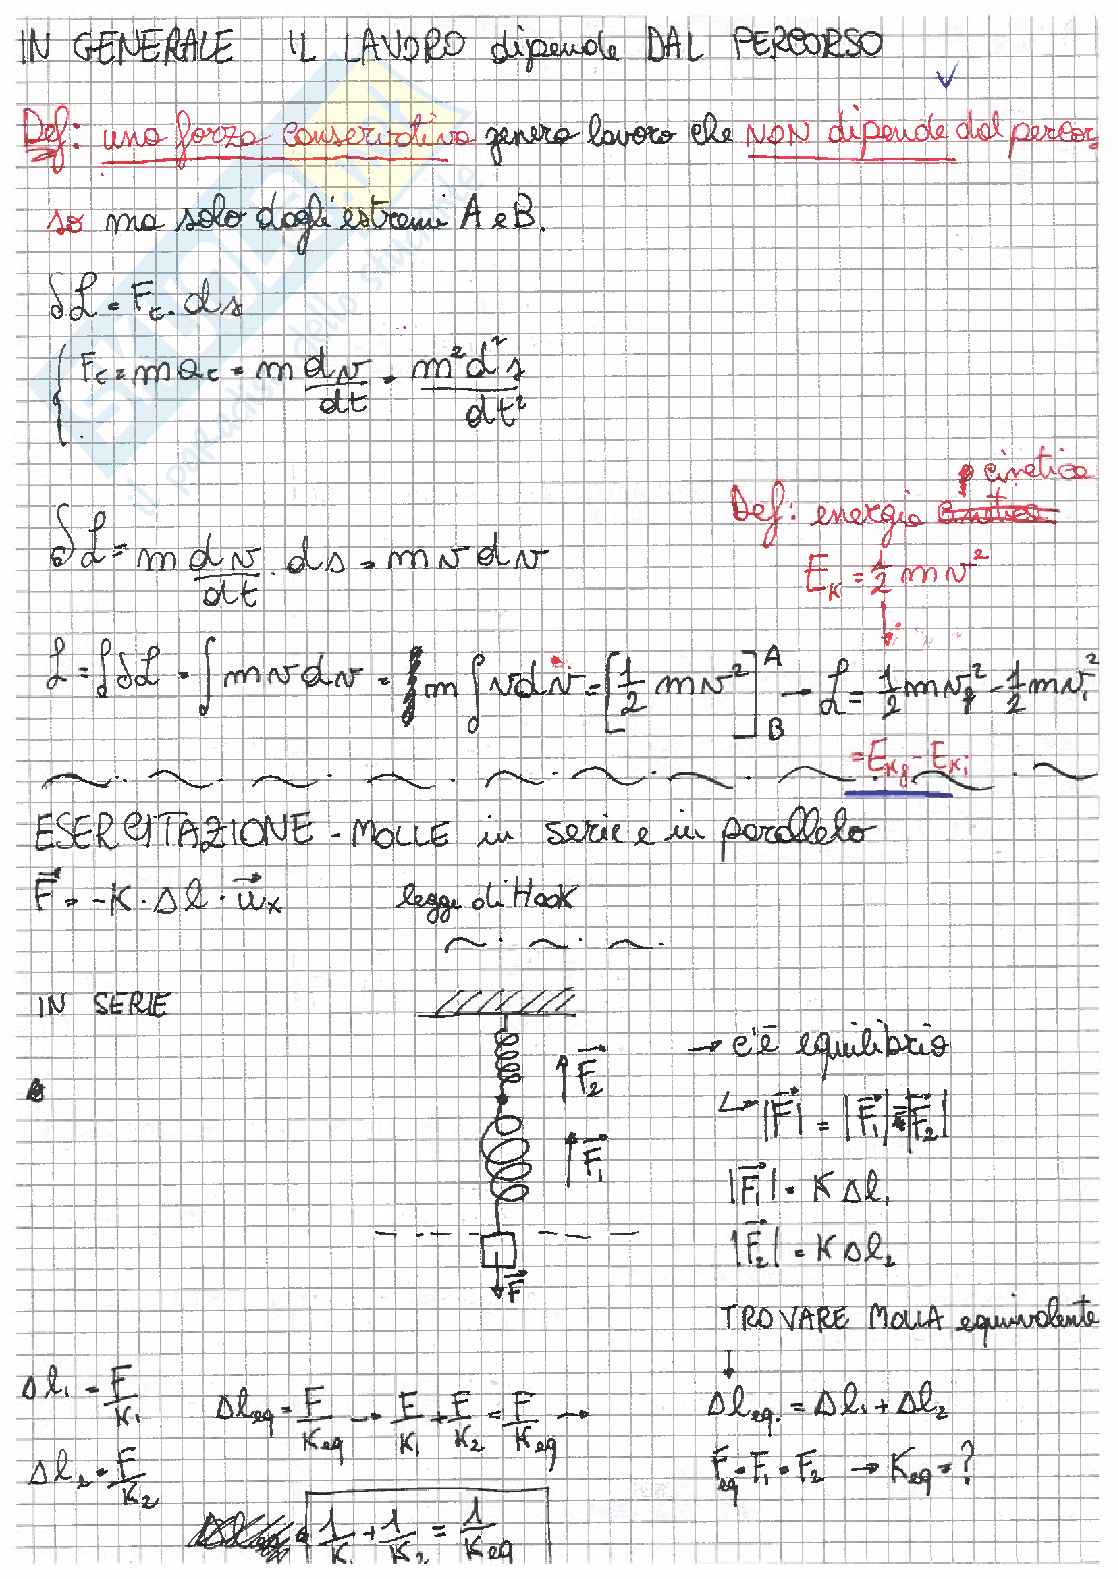 IN GENERALE IL LAVORO dipende DAL PERCORSO
Def: una forza conservativa genera lavoro che NON dipende dal percor-
so ma solo dagli estremi A e B.
δL = Fc · ds
Fc = m ac = m dv/dt = m²d²s/dt²
Def: energia cinetica
δL = m dv/dt · ds = m v dv
E_K = 1/2 mv²
L = ∫δL = ∫ m v dv = m ∫ v dv = [1/2 mv²]^A_B → L = 1/2 mv_f² - 1/2 mv_i²
= E_Kf - E_Ki
ESERCITAZIONE - MOLLE in serie e in parallelo
F = -K · Δl · u_x legge di Hook
IN SERIE
→ c'è equilibrio
F₂
|F| = |F₁| = |F₂|
F₁
|F₁| = K Δl₁
|F₂| = K Δl₂
F
TROVARE MOLLA equivalente
Δl₁ = F/K₁
Δl_eq = F/K_eq → F/K₁ + F/K₂ = F/K_eq →
Δl_eq. = Δl₁ + Δl₂
Δl₂ = F/K₂
F_eq = F₁ = F₂ → K_eq = ?
1/K₁ + 1/K₂ = 1/K_eq